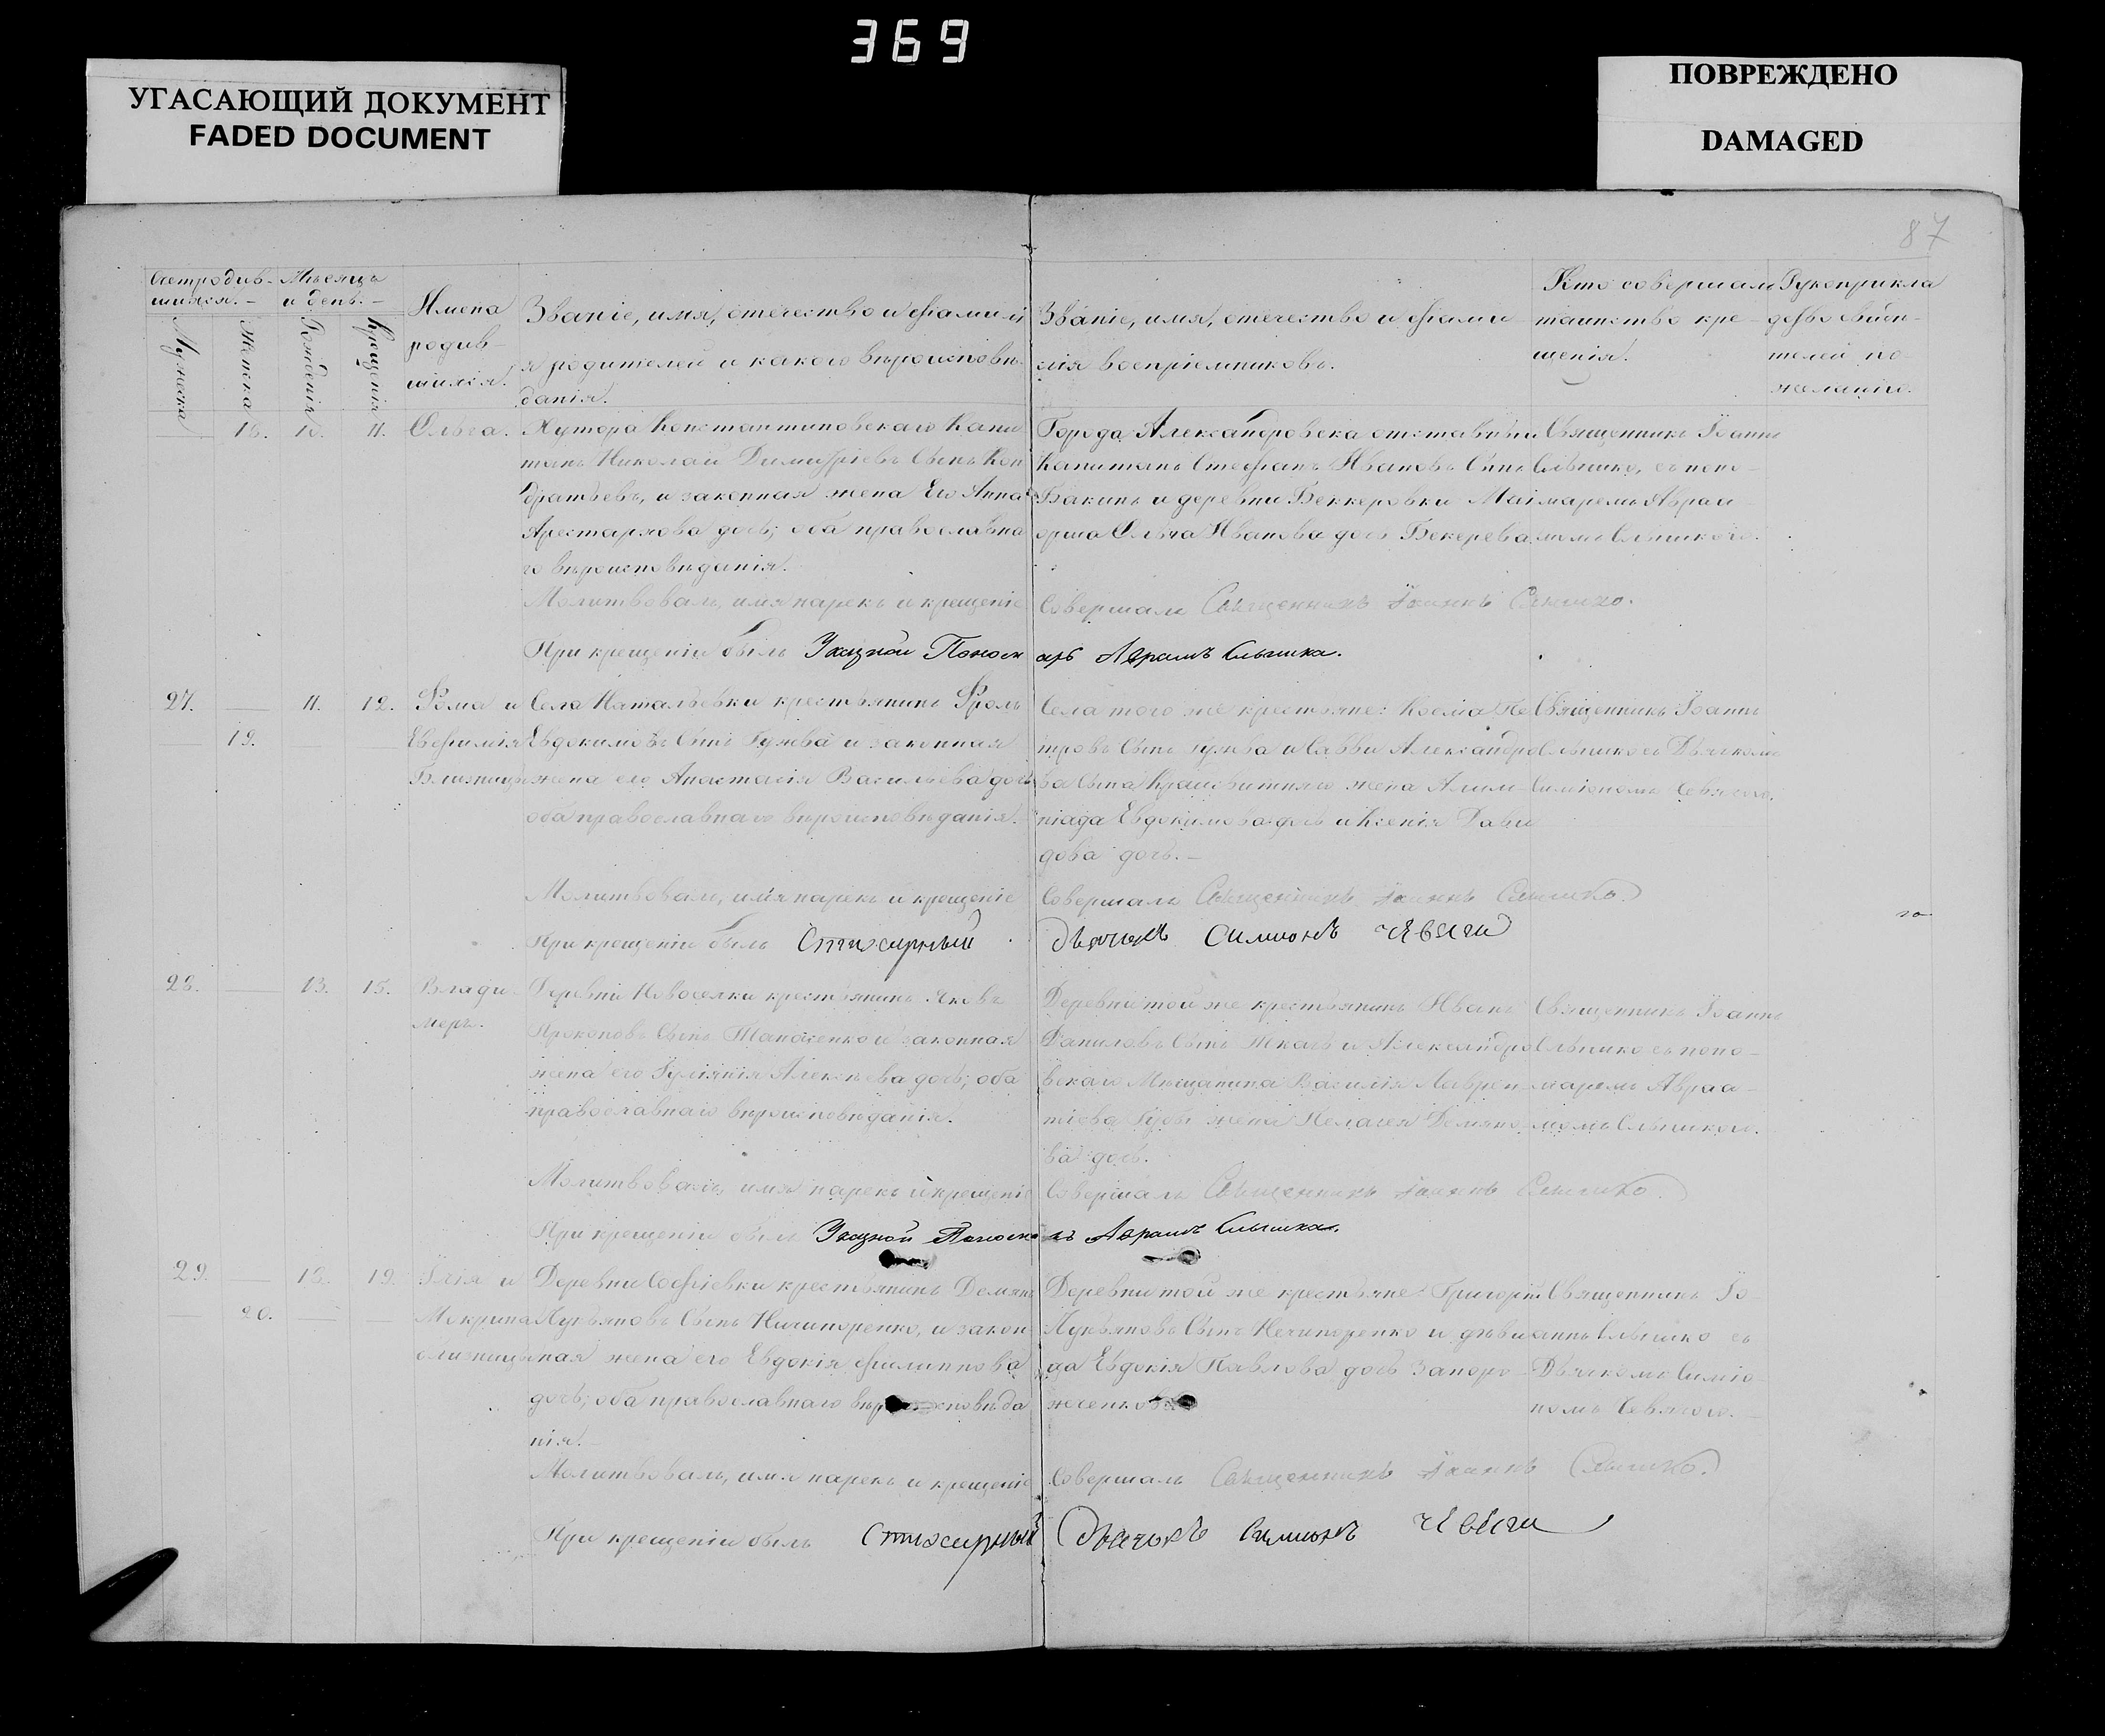 369
УГАСАЮЩИЙ ДОКУМЕНТ
FADED DOCUMENT
ПОВРЕЖДЕНО
DAMAGED
87
Счетъ родив-
шихся.
Мѣсяцъ
и день.
Мужеска
Женска
Рожденія
Крещенія
Имена
родив-
шихся.
Званіе, имя, отечество и фамилі
я родителей и какого вѣроисповѣ-
данія.
Званіе, имя, отечество и фами
лія воспріемниковъ.
Кто совершалъ
таинство кре-
щенія.
Рукоприкла
дство свидѣ-
телей по
желанію.
18. 10. 11. Ольга.
Хутора Константиновскаго Капи
танъ Николай Димитріевъ Сынъ Кон
дратьевъ, и законная жена Его Анна
Арестархова дочь; оба православна
го вѣроисповѣданія.
Города Александровска отставный
Капитанъ Стефанъ Ивановъ Сынъ
Бакинъ и деревни Беккеровки Маі
орша Ольга Иванова дочь Бекерева
Священникъ Іоаннъ
Слышко, съ поно-
маремъ Авраа
момъ
Молитвовалъ, имя нарекъ и крещеніе Совершалъ Священникъ Іоаннъ
При крещеніи былъ Указной Пономарь Аврамъ
27. 11. 12. Фома и
19. Евфимія
Близнецы
Села Натальевки крестьянинъ Фролъ
Евдокимовъ Сынъ Гужва и законная
жена его Анастасія Васильева дочь
оба православнаго вѣроисповѣданія.
Села того же крестьяне: Косма Пе
тровъ Сынъ Гужва и Саввы Александро
ва Сына жена
Евдокимова дочь и Ксенія Дави
дова дочь.
Священникъ Іоаннъ
съ Дьячкомъ
Симіономъ
Молитвовалъ, имя нарекъ и крещеніе Совершалъ Священникъ Іоаннъ
При крещеніи былъ Стихарный дьячекъ Симіонъ
28. 13. 15. Влади-
меръ.
Деревни Новоселки крестьянинъ Яковъ
Прокоповъ Сынъ и законная
жена его Іуліянія Алексѣева дочь; оба
православнаго вѣроисповѣданія.
Деревни той же крестьянинъ Иванъ
Даниловъ Сынъ Ткачъ и Александро
вскаго Мѣщанина Василія Лаврен-
тіева жена Пелагея Демяно-
ва дочь.
Священникъ Іоаннъ
съ поно-
маремъ Авраа-
момъ
Молитвовалъ, имя нарекъ и крещеніе Совершалъ Священникъ Іоаннъ
При крещеніи былъ Указной Аврамъ
29. 18. 19. Илія и
20. Мокрина
близнецы
Деревни Софіевки крестьянинъ Демянъ
Лукьяновъ Сынъ Ничипоренко, и закон
ная жена его Евдокія Филиппова
дочь; оба православнаго
нія.
Деревни той же крестьяне: Григорій
Лукьяновъ Сынъ Нечипоренко и дѣви
ца Евдокія Павлова дочь
Священникъ Іо-
аннъ съ
Дьячкомъ Симіо-
номъ
Молитвовалъ, имя нарекъ и крещеніе Совершалъ Священникъ Іоаннъ
При крещеніи былъ Стихарный Дьячокъ Симіонъ